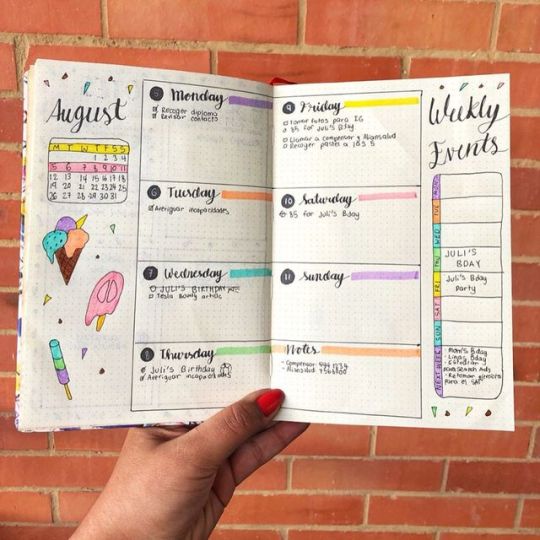 August
M T W T F S S
1 2 3 4
5 6 7 8 9 10 11
12 13 14 15 16 17 18
19 20 21 22 23 24 25
26 27 28 29 30 31
5 Monday
Recoger diploma
Revisar contacts
6 Tuesday
Averiguar incapacidades
7 Wednesday
JULI'S BIRTHDAY
Tesla
8 Thursday
Juli's Birthday
Averiguar incapacidades
9 Friday
Tomar fotos para IG
85 for Juli's Bday
Llamar a compensar y Aliansalud
Recoger
10 Saturday
85 for Juli's Bday
11 Sunday
Notes
- Compensar
- Aliansalud
Weekly
Events
MON
TUE
WED
THU
JULI'S
BDAY
FRI
Juli's Bday
Party
SAT
SUN
NEXT WEEK
- Mom's Bday
Bday